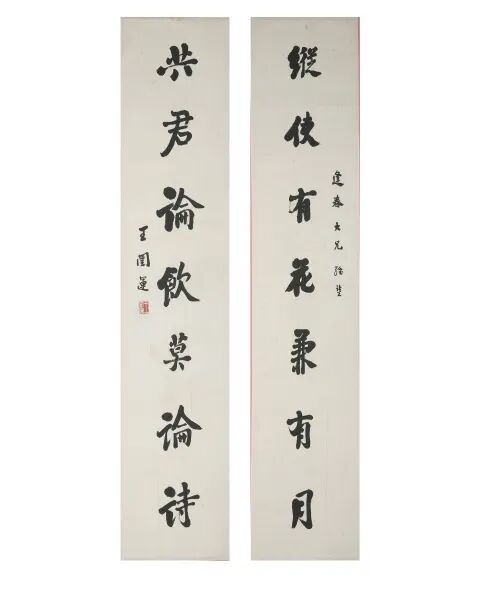 縱使有花兼有月
大兄
共君論飲莫論詩
王闓運